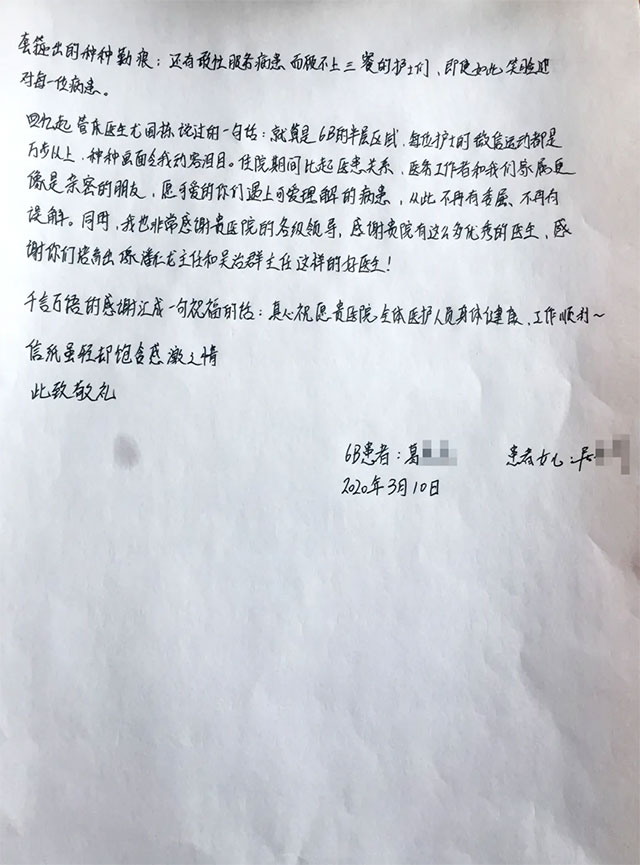 出的种种勤痕；还有敬性服务病患而顾不上三餐的护士们，即便如此笑脸迎
对每一位病患。
回忆起管床医生尤国栋说过的一句话：就算是6B的半层区域，每位护士的微信运动都是
万步以上，种种画面令我动容泪目。住院期间比起医患关系，医务工作者和我们家属更
像是亲密的朋友，愿可爱的你们遇上可爱理解的病患，从此不再有委屈、不再有
误解。同时，我也非常感谢贵医院的各级领导，感谢贵院有这么多优秀的医生，感
谢你们培养出像潘仁龙主任和吴治群主任这样的好医生！
千言万语的感谢汇成一句祝福的话：真心祝愿贵医院全体医护人员身体健康、工作顺利～
信纸虽轻却饱含感激之情
此致敬礼
6B患者：葛 患者女儿：居
2020年3月10日